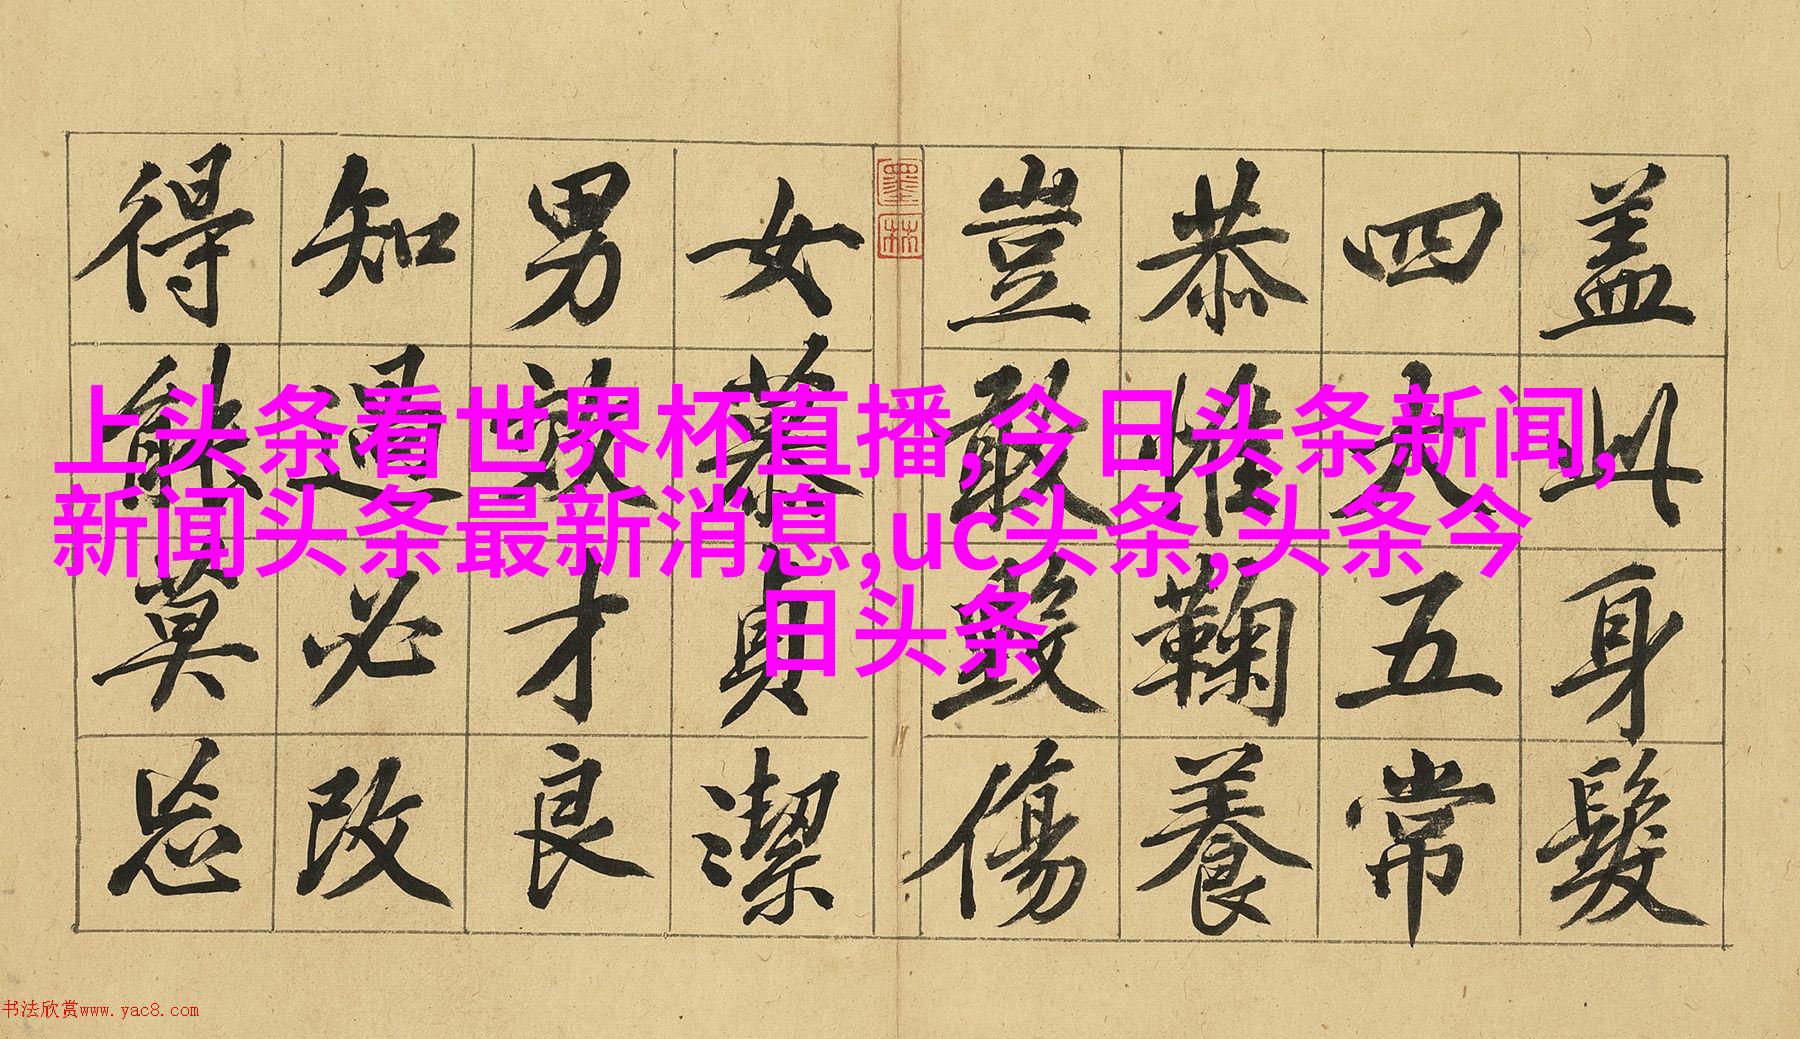 盖此身髮
四大五常
恭惟鞠養
豈敢毀傷
墨林
女慕貞潔
男效才良
知過必改
得能莫忘
上头条看世界杯直播,今日头条新闻,
新闻头条最新消息,uc头条,头条今
日头条
书法欣赏www.yac8.com